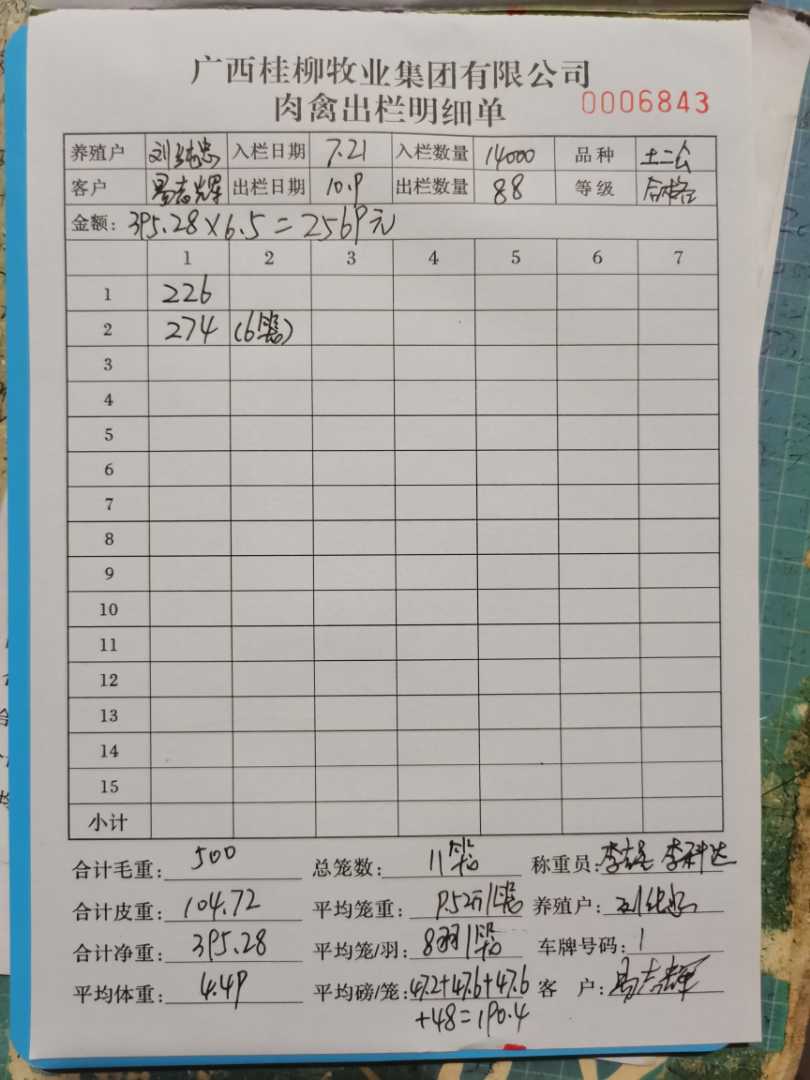 广西桂柳牧业集团有限公司
肉禽出栏明细单 0006843
养殖户 刘 忠 入栏日期 7.21 入栏数量 14000 品种 土二公
客户 易志辉 出栏日期 10.9 出栏数量 88 等级 合格
金额: 395.28×6.5=2569元
1 2 3 4 5 6 7
1 226
2 274 (6笼)
3
4
5
6
7
8
9
10
11
12
13
14
15
小计
合计毛重: 500 总笼数: 11笼 称重员: 李 李科达
合计皮重: 104.72 平均笼重: 9.52斤/笼 养殖户: 刘 忠
合计净重: 395.28 平均笼/羽: 8羽/笼 车牌号码: 1
平均体重: 4.49 平均磅/笼: 47.2+47.6+47.6 客 户: 易志辉
+48=190.4